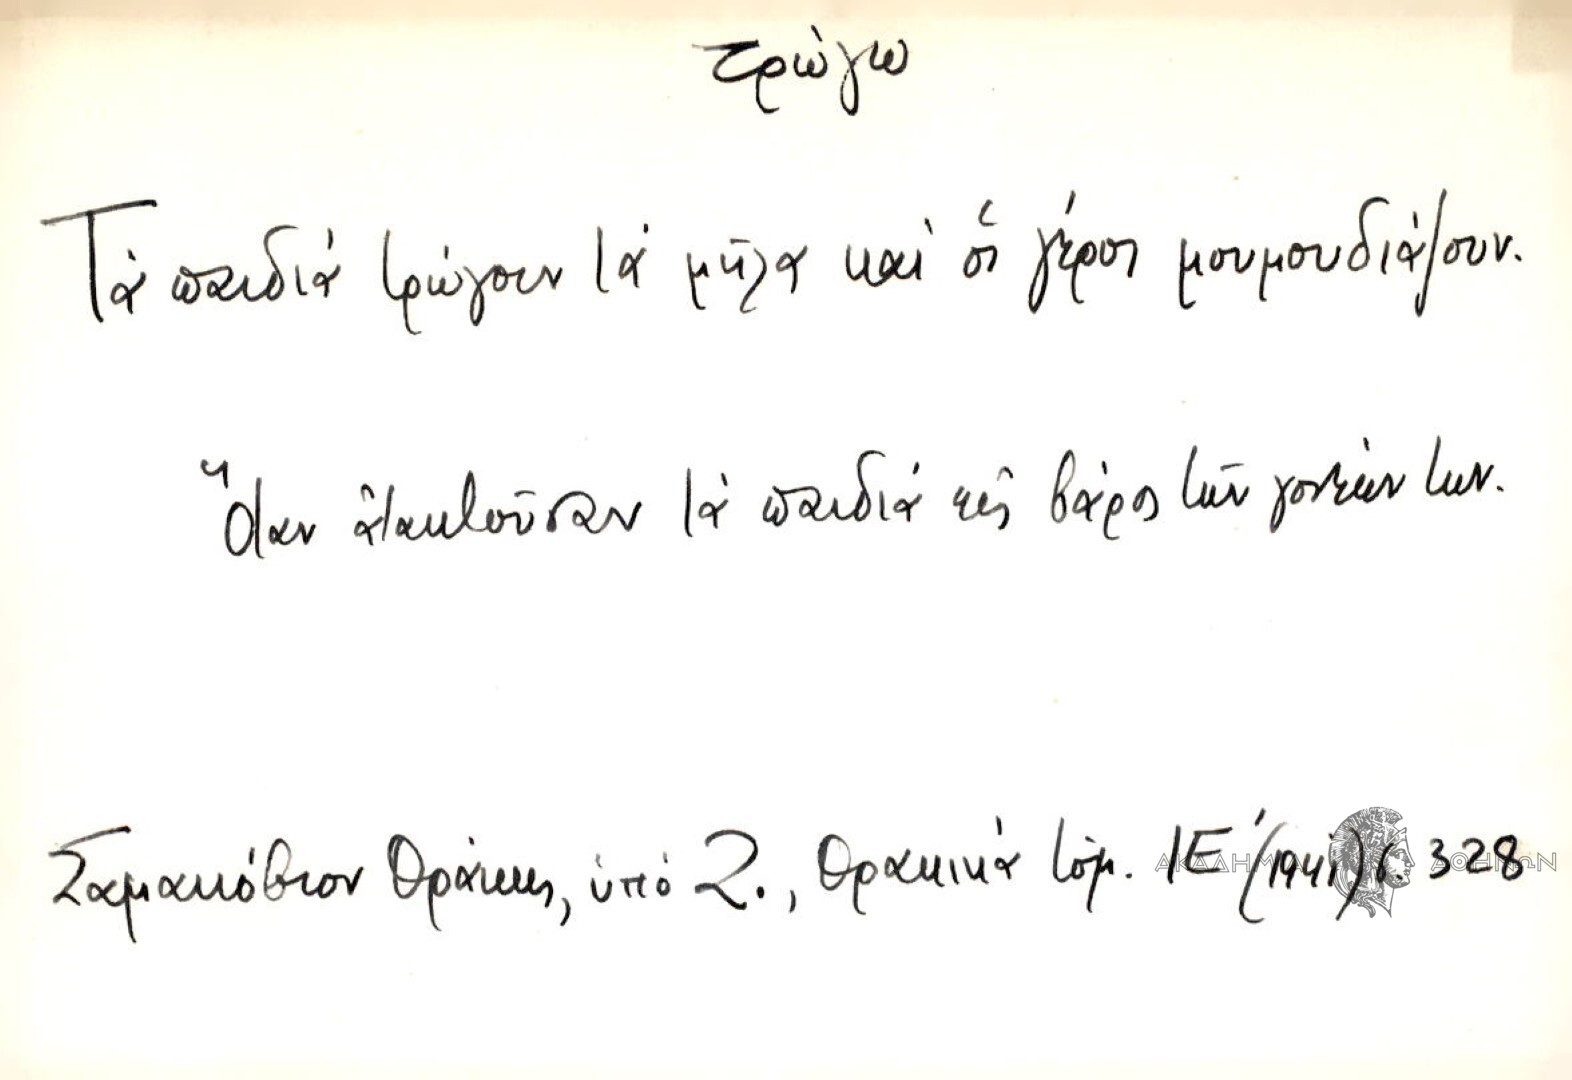 τρώγω
Τὰ παιδιὰ τρώγουν τὰ μῆλα καὶ οἱ γέροι μουμουδιάζουν.
Ὅταν ἀτακτοῦσαν τὰ παιδιὰ εἰς βάρος τῶν γονέων των.
Σαμακόβιον Θράκης, ὑπό Ζ., Θρακικὰ τόμ. ΙΕ΄ (1941) σ. 328
ΑΚΑΔΗΜΙΑ ΑΘΗΝΩΝ